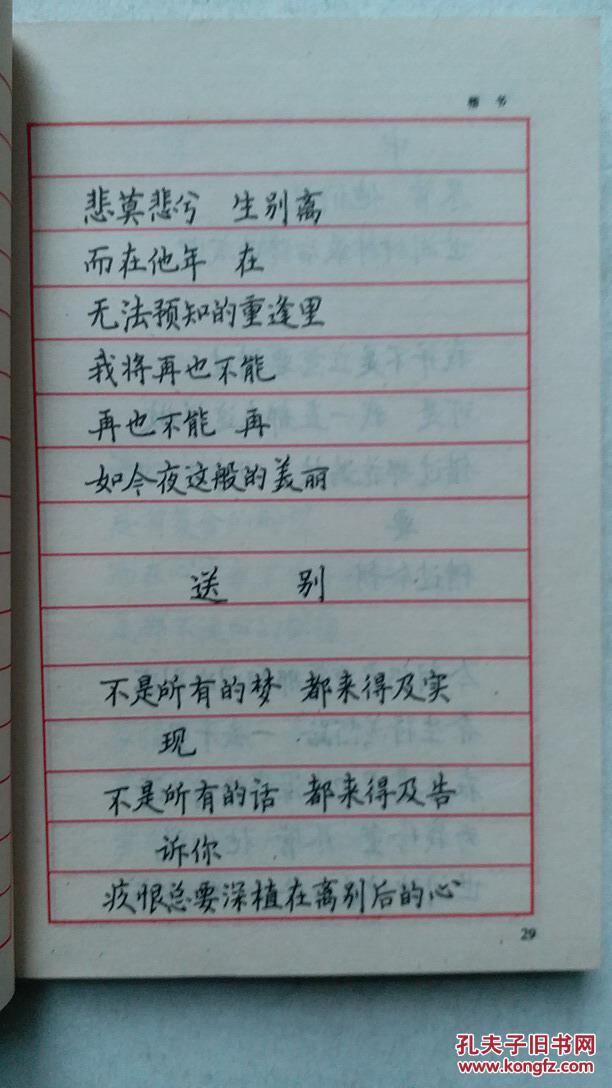 楷书
悲莫悲兮 生别离
而在他年 在
无法预知的重逢里
我将再也不能
再也不能 再
如今夜这般的美丽
送 别
不是所有的梦 都来得及实
现
不是所有的话 都来得及告
诉你
疚恨总要深植在离别后的心
29
孔夫子旧书网
www.kongfz.com